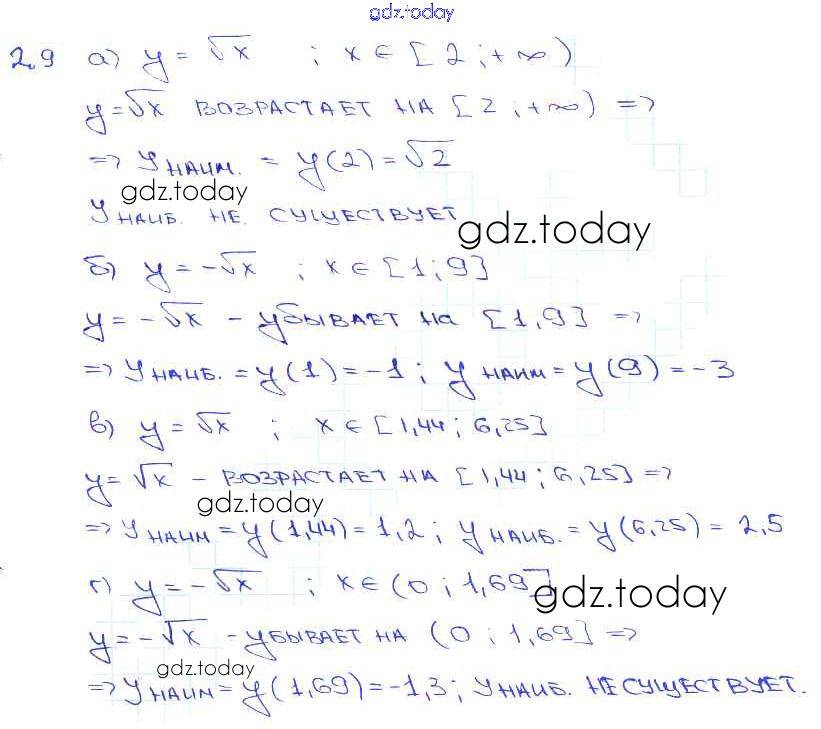 gdz.today
2.9 а) y = √x ; x ∈ [2 ; +∞)
y = √x ВОЗРАСТАЕТ НА [2 ; +∞) =>
=> y НАИМ. = y(2) = √2
gdz.today
y НАИБ. НЕ. СУЩЕСТВУЕТ
gdz.today
б) y = -√x ; x ∈ [1 ; 9]
y = -√x - УБЫВАЕТ НА [1, 9] =>
=> y НАИБ. = y(1) = -1 ; y НАИМ = y(9) = -3
в) y = √x ; x ∈ [1,44 ; 6,25]
y = √x - ВОЗРАСТАЕТ НА [1,44 ; 6,25] =>
gdz.today
=> y НАИМ = y(1,44) = 1,2 ; y НАИБ. = y(6,25) = 2,5
г) y = -√x ; x ∈ (0 ; 1,69]
gdz.today
y = -√x - УБЫВАЕТ НА (0 ; 1,69] =>
gdz.today
=> y НАИМ = y(1,69) = -1,3 ; y НАИБ. НЕ СУЩЕСТВУЕТ.